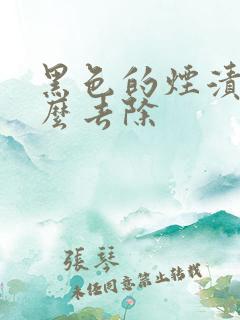 黑色的煙漬
麼去除
張琴
未任同意禁止转載